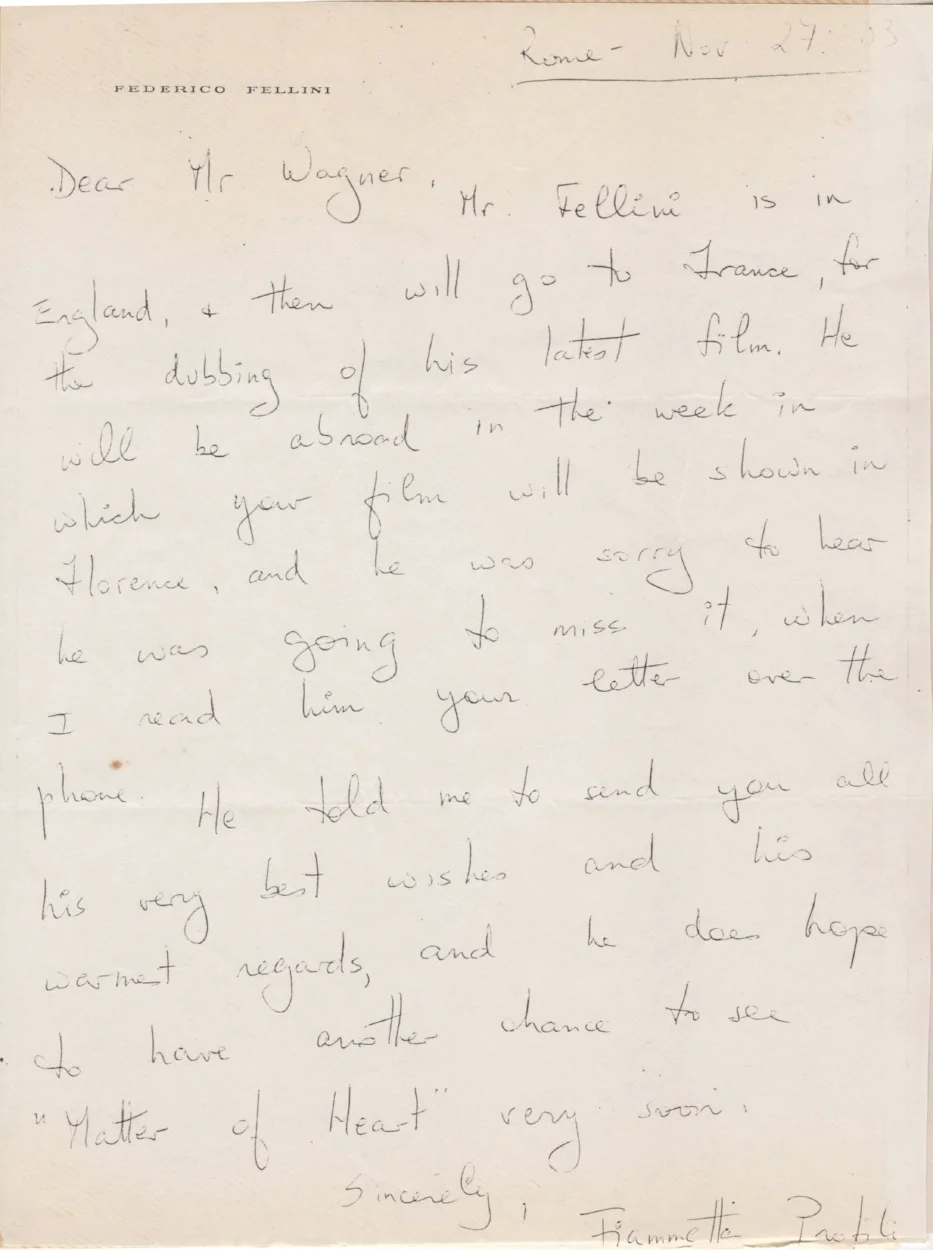 Rome - Nov 27. 83
FEDERICO FELLINI
Dear Mr Wagner,
Mr. Fellini is in
England, & then will go to France, for
the dubbing of his latest film. He
will be abroad in the week in
which your film will be shown in
Florence, and he was sorry to hear
he was going to miss it, when
I read him your letter over the
phone. He told me to send you all
his very best wishes and his
warmest regards, and he does hope
to have another chance to see
"Matter of Heart" very soon.
Sincerely,
Fiammetta